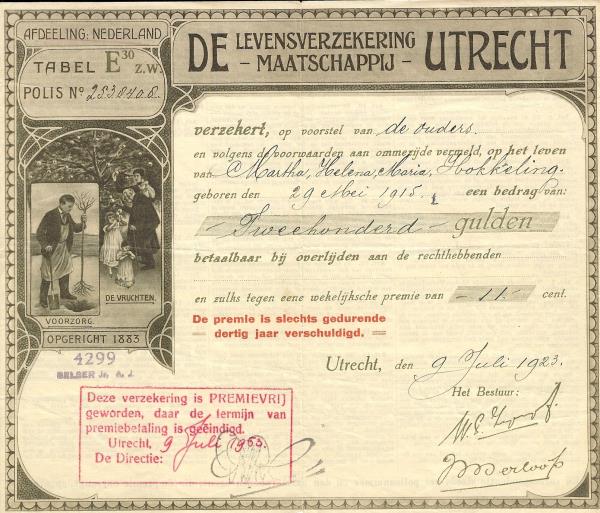 AFDEELING: NEDERLAND
TABEL E 30 Z.W.
POLIS No 2538408.
DE LEVENSVERZEKERING
– MAATSCHAPPIJ – UTRECHT
verzekert, op voorstel van de ouders.
en volgens de voorwaarden aan ommezijde vermeld, op het leven
van Martha, Helena, Maria, Hokkeling.
geboren den 29 Mei 1915. een bedrag van:
– Tweehonderd – gulden
betaalbaar bij overlijden aan de rechthebbenden
en zulks tegen eene wekelijksche premie van – 11 – cent.
De premie is slechts gedurende
dertig jaar verschuldigd.
Utrecht, den 9 Juli 1923.
Het Bestuur:
DE VRUCHTEN.
VOORZORG.
OPGERICHT 1883
4299
BELSER Jr. A. J.
Deze verzekering is PREMIEVRIJ
geworden, daar de termijn van
premiebetaling is geëindigd.
Utrecht, 9 Juli 1953.
De Directie: